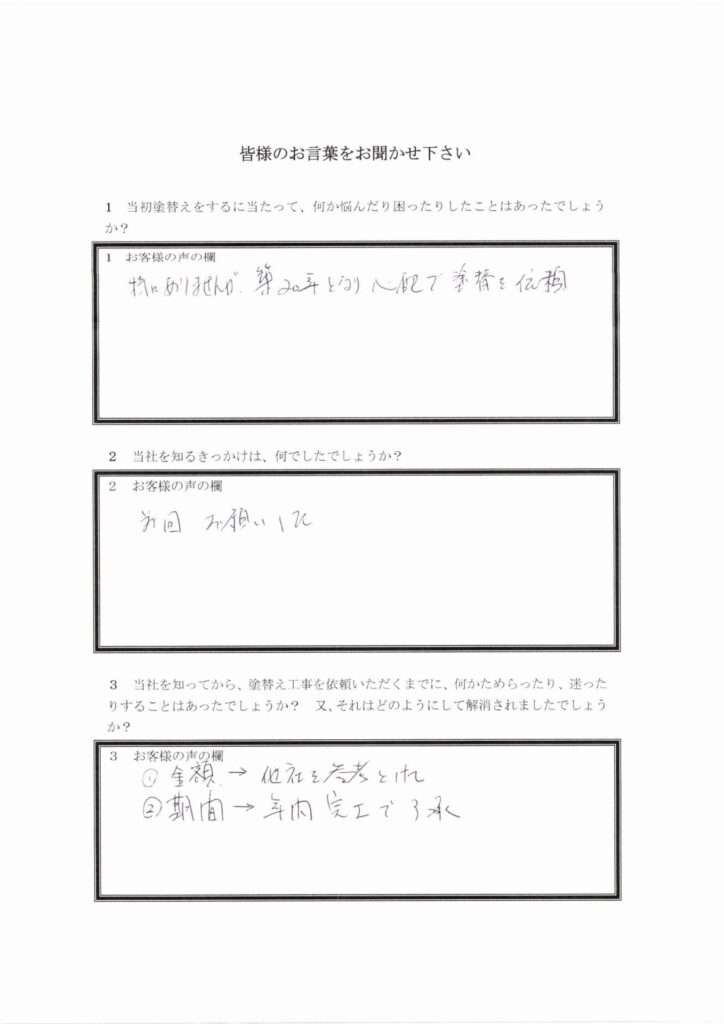 皆様のお言葉をお聞かせ下さい
1 当初塗替えをするに当たって、何か悩んだり困ったりしたことはあったでしょう
か？
1 お客様の声の欄
特にありませんが、築20年となり心配で塗替を依頼
2 当社を知るきっかけは、何でしたでしょうか？
2 お客様の声の欄
前回 お願いした
3 当社を知ってから、塗替え工事を依頼いただくまでに、何かためらったり、迷った
りすることはあったでしょうか？ 又、それはどのようにして解消されましたでしょう
か？
3 お客様の声の欄
① 金額 → 他社を参考と
② 期間 → 年内完工で了承